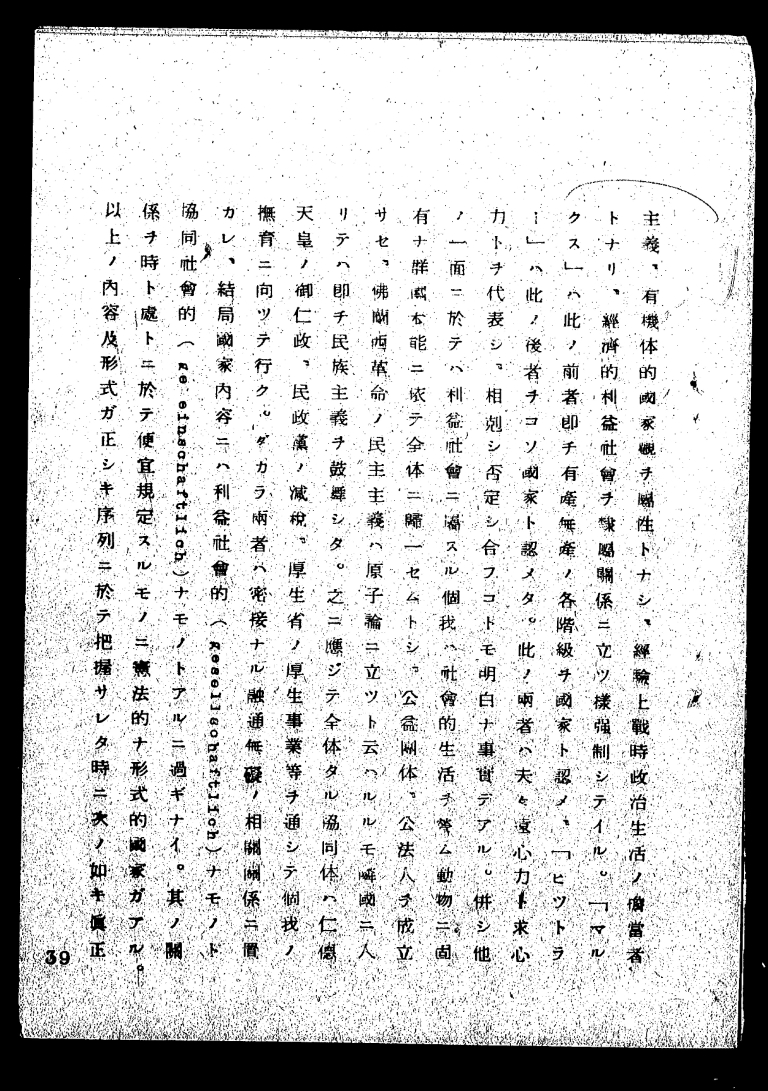 主義、有機体的國家觀ヲ屬性トナシ、經驗上戰時政治生活ノ擔當者
トナリ、經濟的利益社會ヲ隸屬關係ニ立ツ樣强制シテイル。「マル
クス」ハ此ノ前者卽チ有產無產ノ各階級ヲ國家ト認メ、「ヒツトラ
ー」ハ此ノ後者ヲコソ國家ト認メタ。此ノ兩者ハ夫々遠心力ト求心
力トヲ代表シ、相剋シ否定シ合フコトモ明白ナ事實デアル。併シ他
ノ一面ニ於テハ利益社會ニ屬スル個我ハ社會的生活ヲ營ム動物ニ固
有ナ群團本能ニ依テ全体ニ歸一セムトシ、公益團体、公法人ヲ成立
サセ、佛蘭西革命ノ民主主義ハ原子論ニ立ツト云ハルルモ隣國ニ入
リテハ卽チ民族主義ヲ鼓舞シタ。之ニ應ジテ全体タル協同体ハ仁德
天皇ノ御仁政、民政黨ノ減稅、厚生省ノ厚生事業等ヲ通シテ個我ノ
撫育ニ向ツテ行ク。ダカラ兩者ハ密接ナル融通無礙ノ相關關係ニ置
カレ、結局國家內容ニハ利益社會的（gesellschaftlich）ナモノト
協同社會的（ge einschaftlich）ナモノトアルニ過ギナイ。其ノ關
係ヲ時ト處トニ於テ便宜規定スルモノニ憲法的ナ形式的國家ガアル。
以上ノ內容及形式ガ正シキ序列ニ於テ把握サレタ時ニ次ノ如キ眞正
39